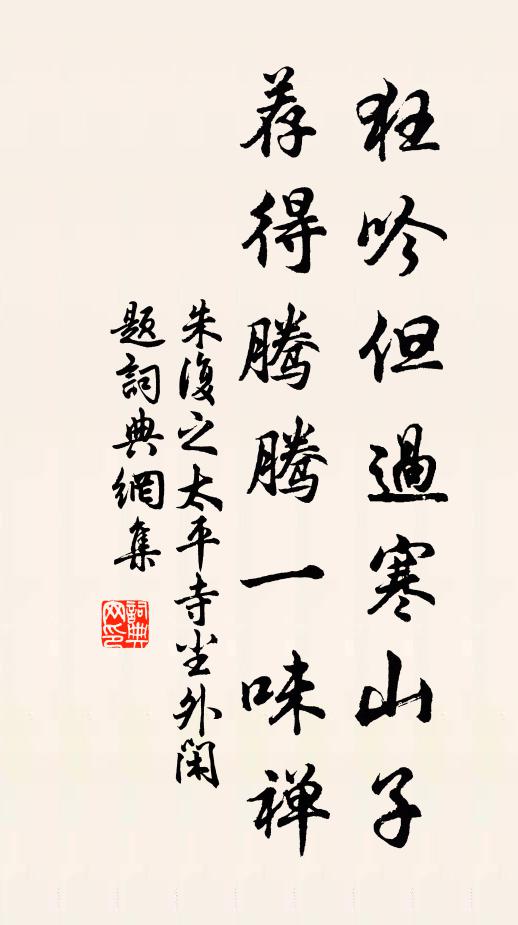 狂吟但過寒山子
荐得腾腾一味禅
朱復之太平寺尘外閑
題詞典網集
詞典网印